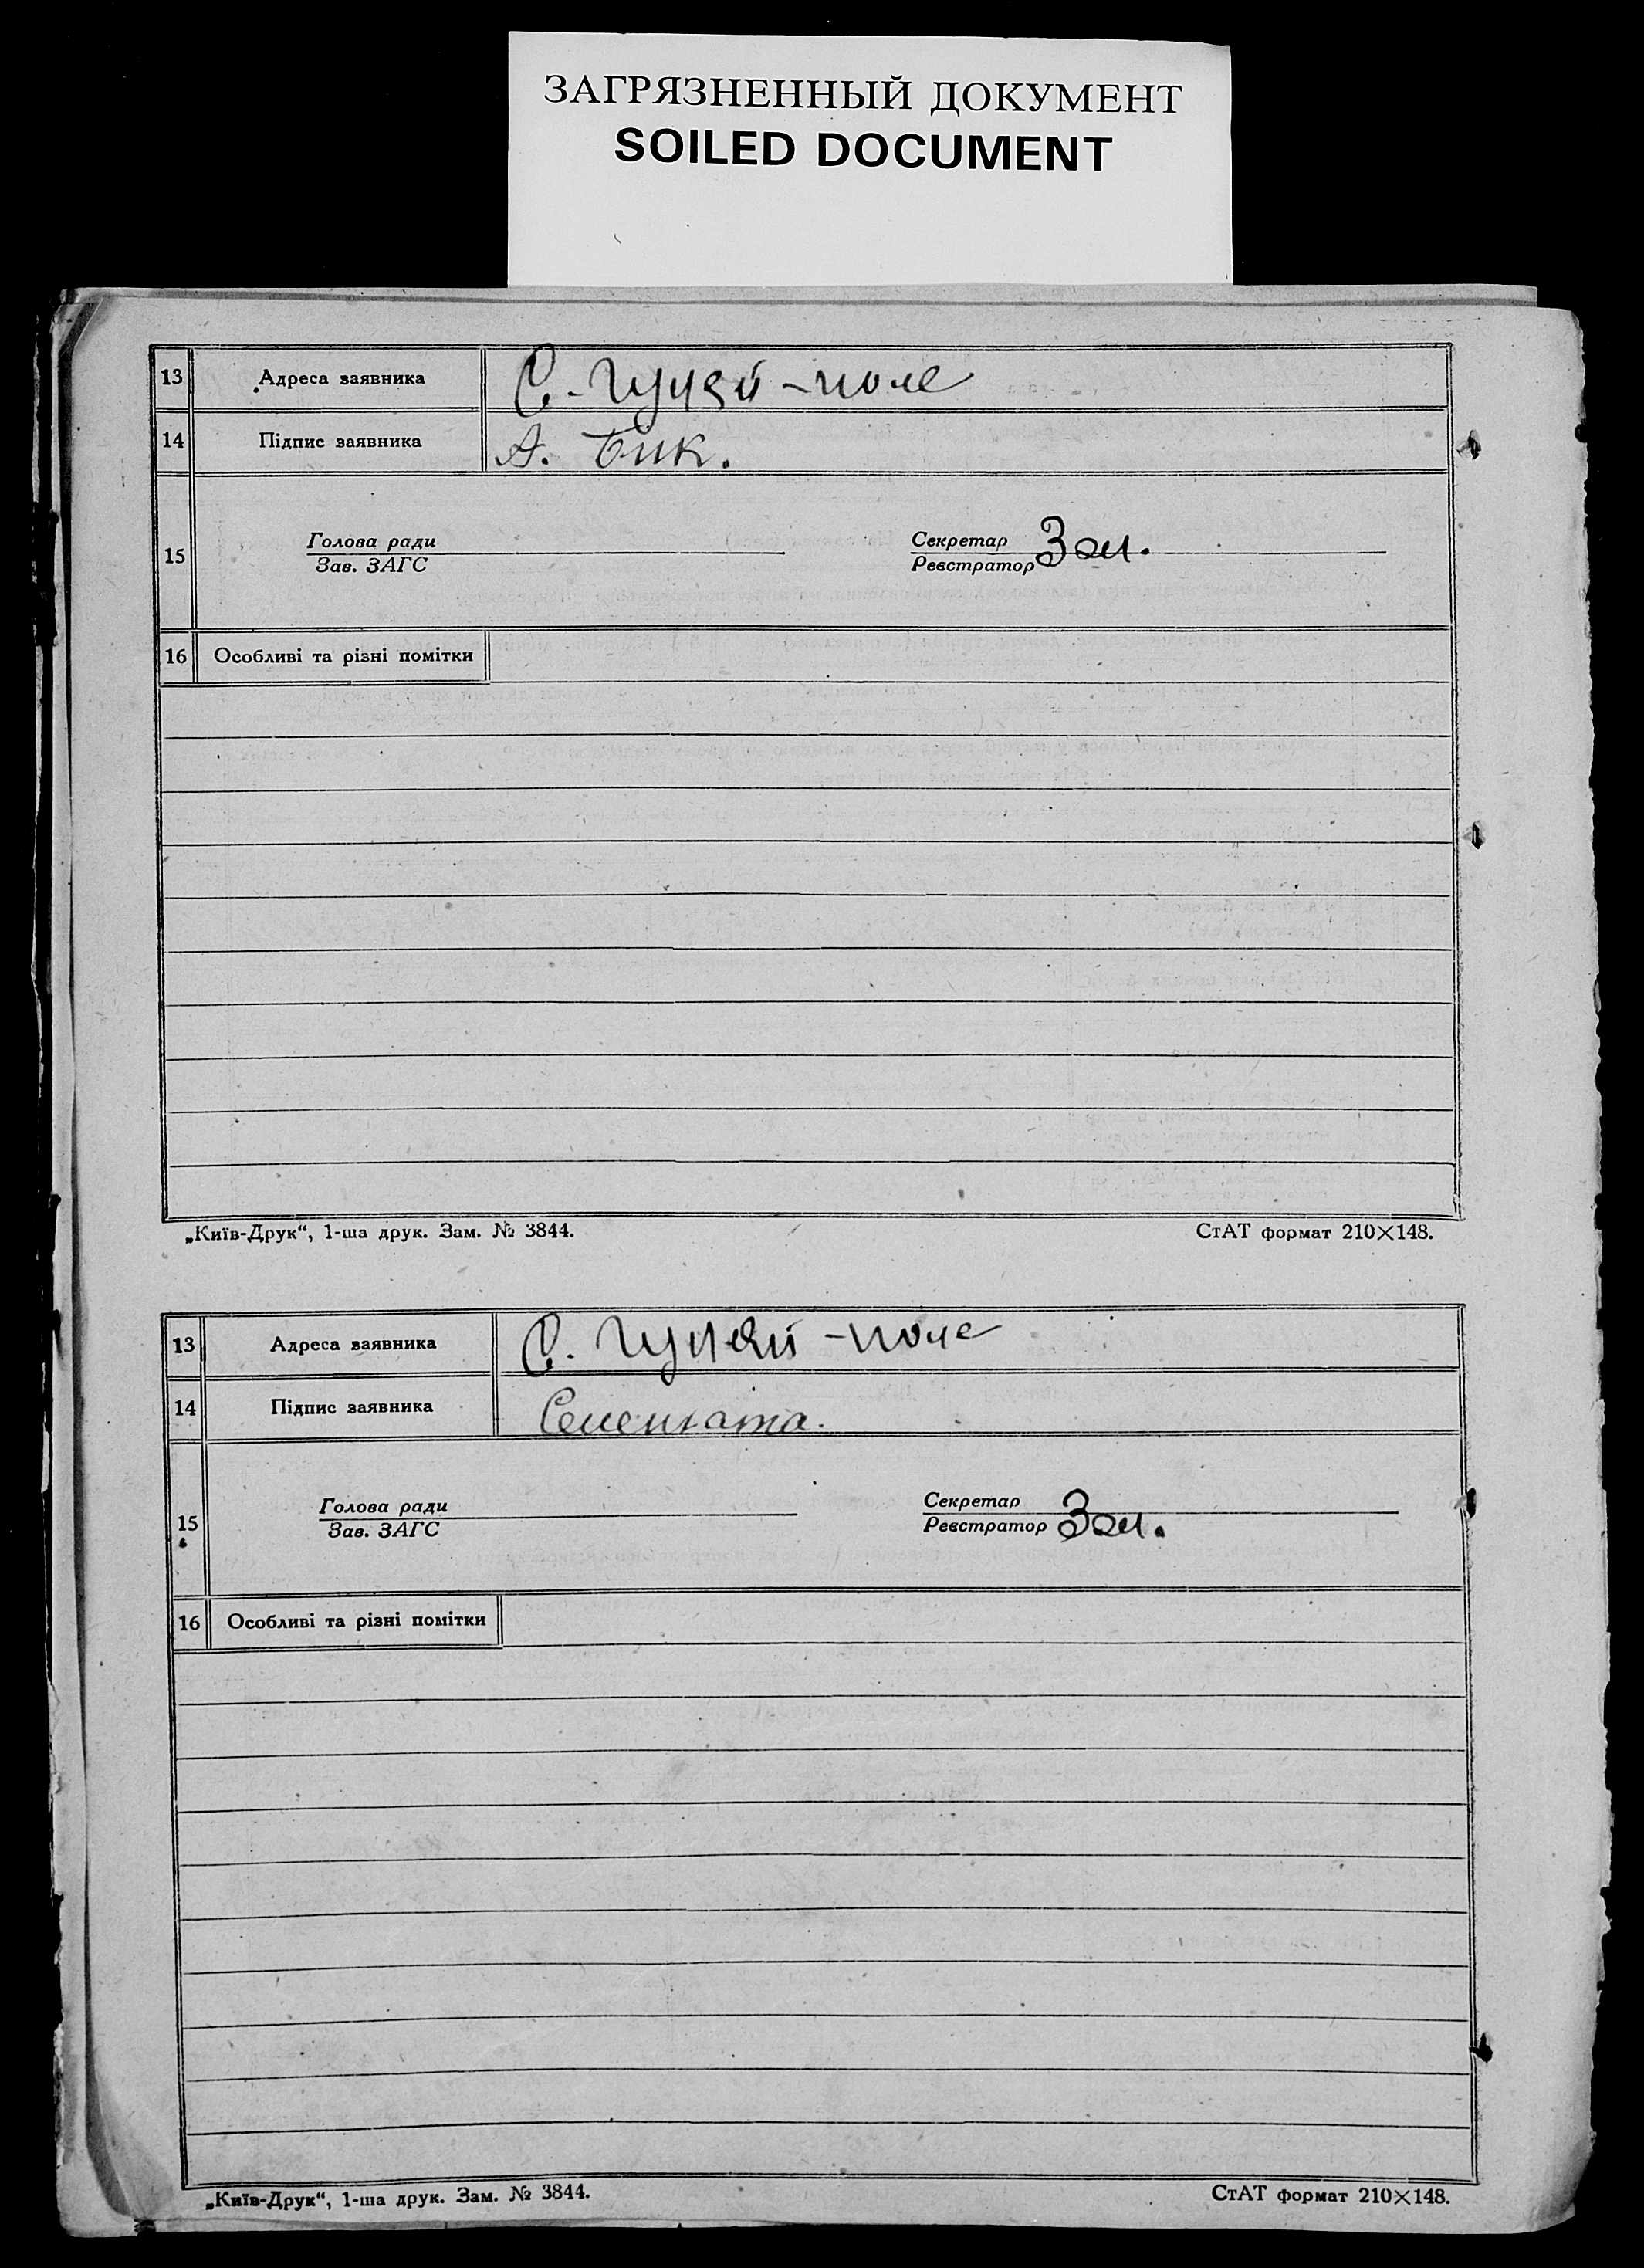 ЗАГРЯЗНЕННЫЙ ДОКУМЕНТ
SOILED DOCUMENT
13 Адреса заявника С. Гуляй-поле
14 Підпис заявника А. Бик.
15
Голова ради Секретар Зам.
Зав. ЗАГС Реєстратор
16 Особливі та різні помітки
„Київ-Друк“, 1-ша друк. Зам. № 3844. СтАТ формат 210×148.
13 Адреса заявника С. Гуляй-поле
14 Підпис заявника
15
Голова ради Секретар Зам.
Зав. ЗАГС Реєстратор
16 Особливі та різні помітки
„Київ-Друк“, 1-ша друк. Зам. № 3844. СтАТ формат 210×148.